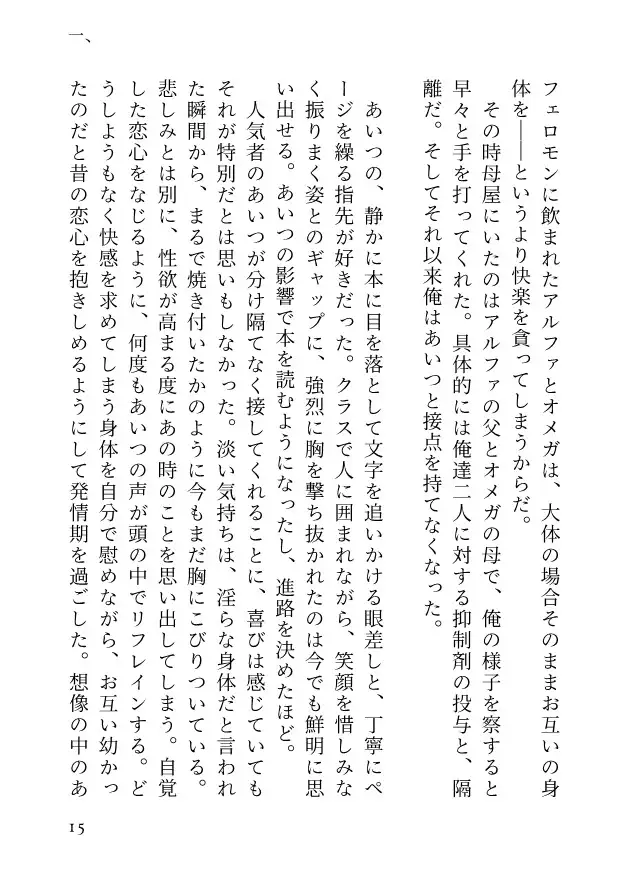 一、
フェロモンに飲まれたアルファとオメガは、大体の場合そのままお互いの身
体を――というより快楽を貪ってしまうからだ。
その時母屋にいたのはアルファの父とオメガの母で、俺の様子を察すると
早々と手を打ってくれた。具体的には俺達二人に対する抑制剤の投与と、隔
離だ。そしてそれ以来俺はあいつと接点を持てなくなった。
あいつの、静かに本に目を落として文字を追いかける眼差しと、丁寧にペ
ージを繰る指先が好きだった。クラスで人に囲まれながら、笑顔を惜しみな
く振りまく姿とのギャップに、強烈に胸を撃ち抜かれたのは今でも鮮明に思
い出せる。あいつの影響で本を読むようになったし、進路を決めたほど。
人気者のあいつが分け隔てなく接してくれることに、喜びは感じていても
それが特別だとは思いもしなかった。淡い気持ちは、淫らな身体だと言われ
た瞬間から、まるで焼き付いたかのように今もまだ胸にこびりついている。
悲しみとは別に、性欲が高まる度にあの時のことを思い出してしまう。自覚
した恋心をなじるように、何度もあいつの声が頭の中でリフレインする。ど
うしようもなく快感を求めてしまう身体を自分で慰めながら、お互い幼かっ
たのだと昔の恋心を抱きしめるようにして発情期を過ごした。想像の中のあ
15